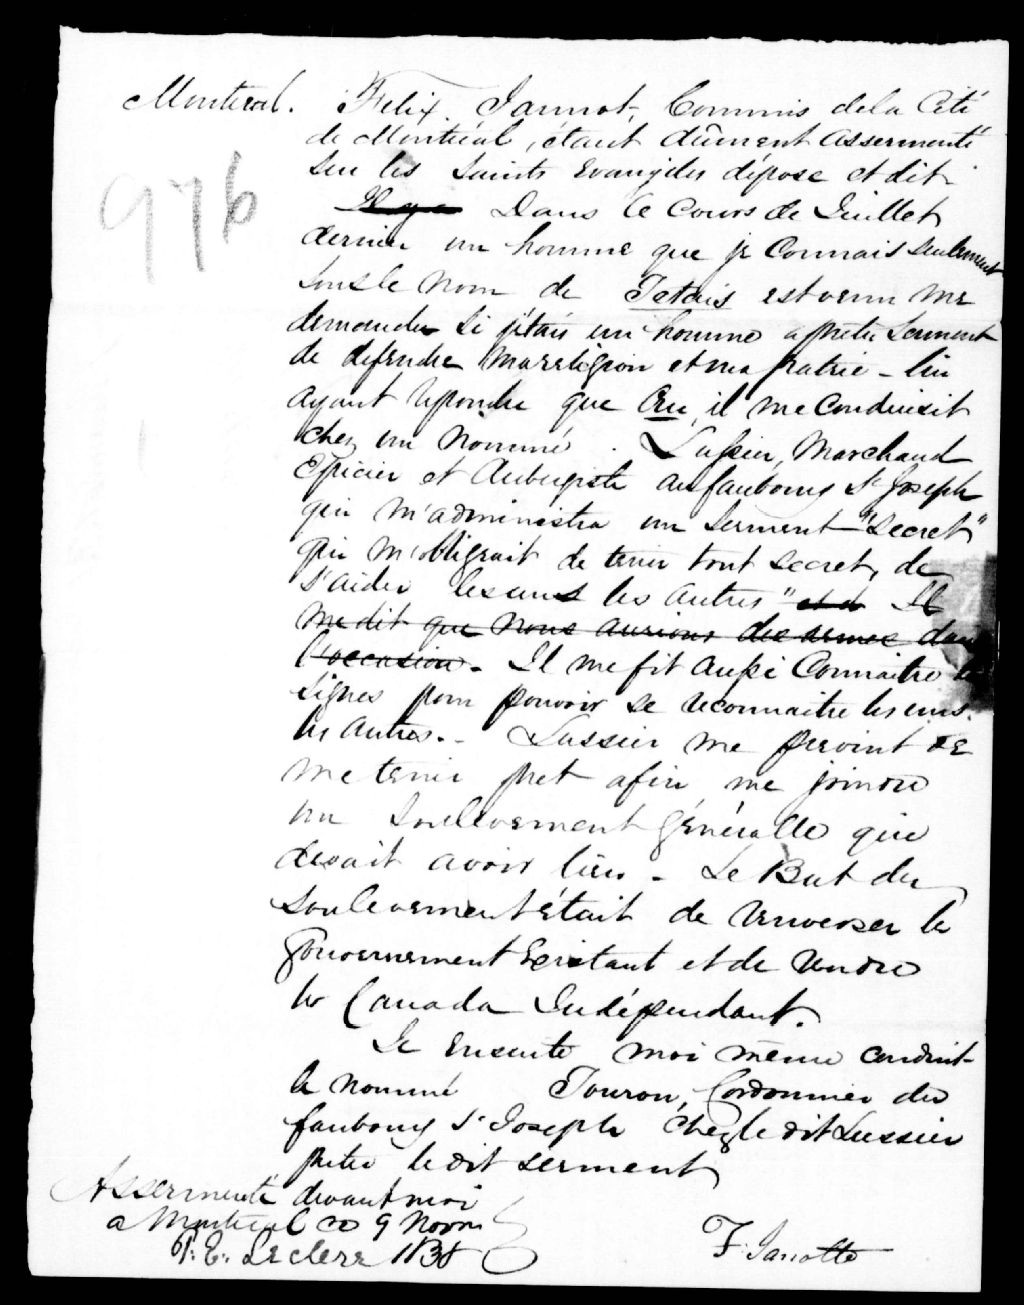 Montreal. Felix Jannot, Commis de la Cité
de Montréal, étant dûment assermenté
sur les Saints Evangiles dépose et dit
Il y a Dans le Cours de Juillet
dernier un homme que je Connais seulement
sous le nom de Tetais est venu me
demander si j'étais un homme a preter Serment
de defendre ma religion et ma patrie - lui
ayant repondu que Oui, il me Conduisit
chez un nommé . Lussier, Marchand
Epicier et Aubergiste au faubourg St Joseph
qui m'administra un Serment "Secret"
qui m'obligeait de tenir tout secret, de
s'aider les uns les autres" et d Il
me dit que nous aurions des armes dans
l'occasion. Il me fit aussi Connaitre les
signes pour pouvoir se reconnaitre les uns
les autres. - Lussier me prevint de
me tenir pret afin me joindre
un Soulevement généralle qui
devait avoir lieu - Le But du
soulevement était de renverser le
Gouvernement Existant et de rendre
le Canada Indépendant.
Je ensuite moi même conduit
le nommé Touron, Cordonnier du
faubourg St Joseph chez le dit Lussier
preter le dit serment
Assermenté devant moi
a Montreal ce 9 Novr
P. E. Leclerc 1838
F. Janotte
976